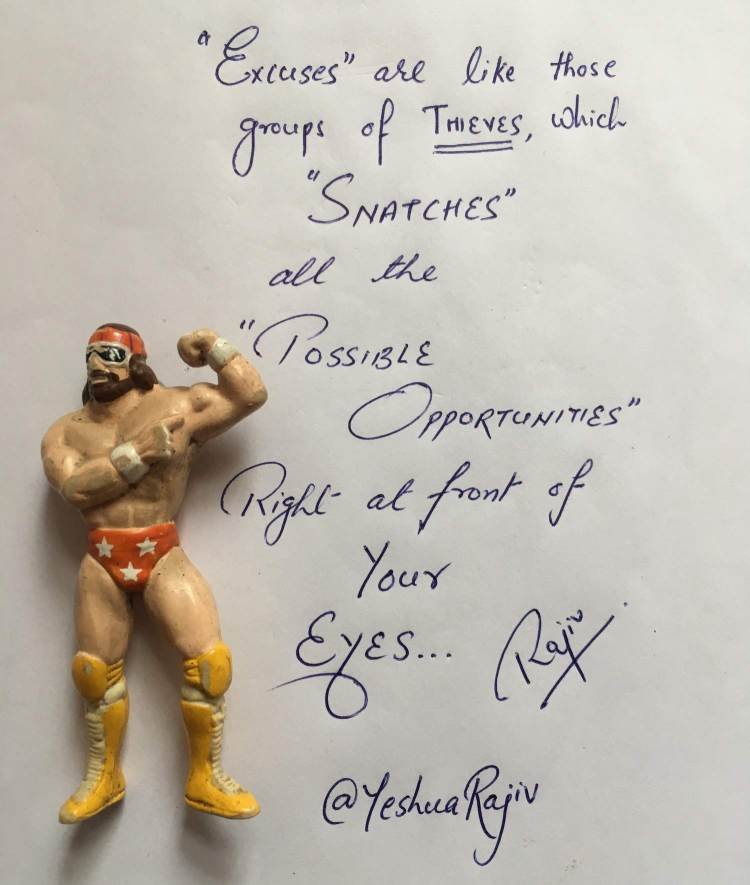 "Excuses" are like those
groups of THIEVES, which
"SNATCHES"
all the
"POSSIBLE
OPPORTUNITIES"
Right at front of
Your
EYES... Rajiv
@YeshuaRajiv